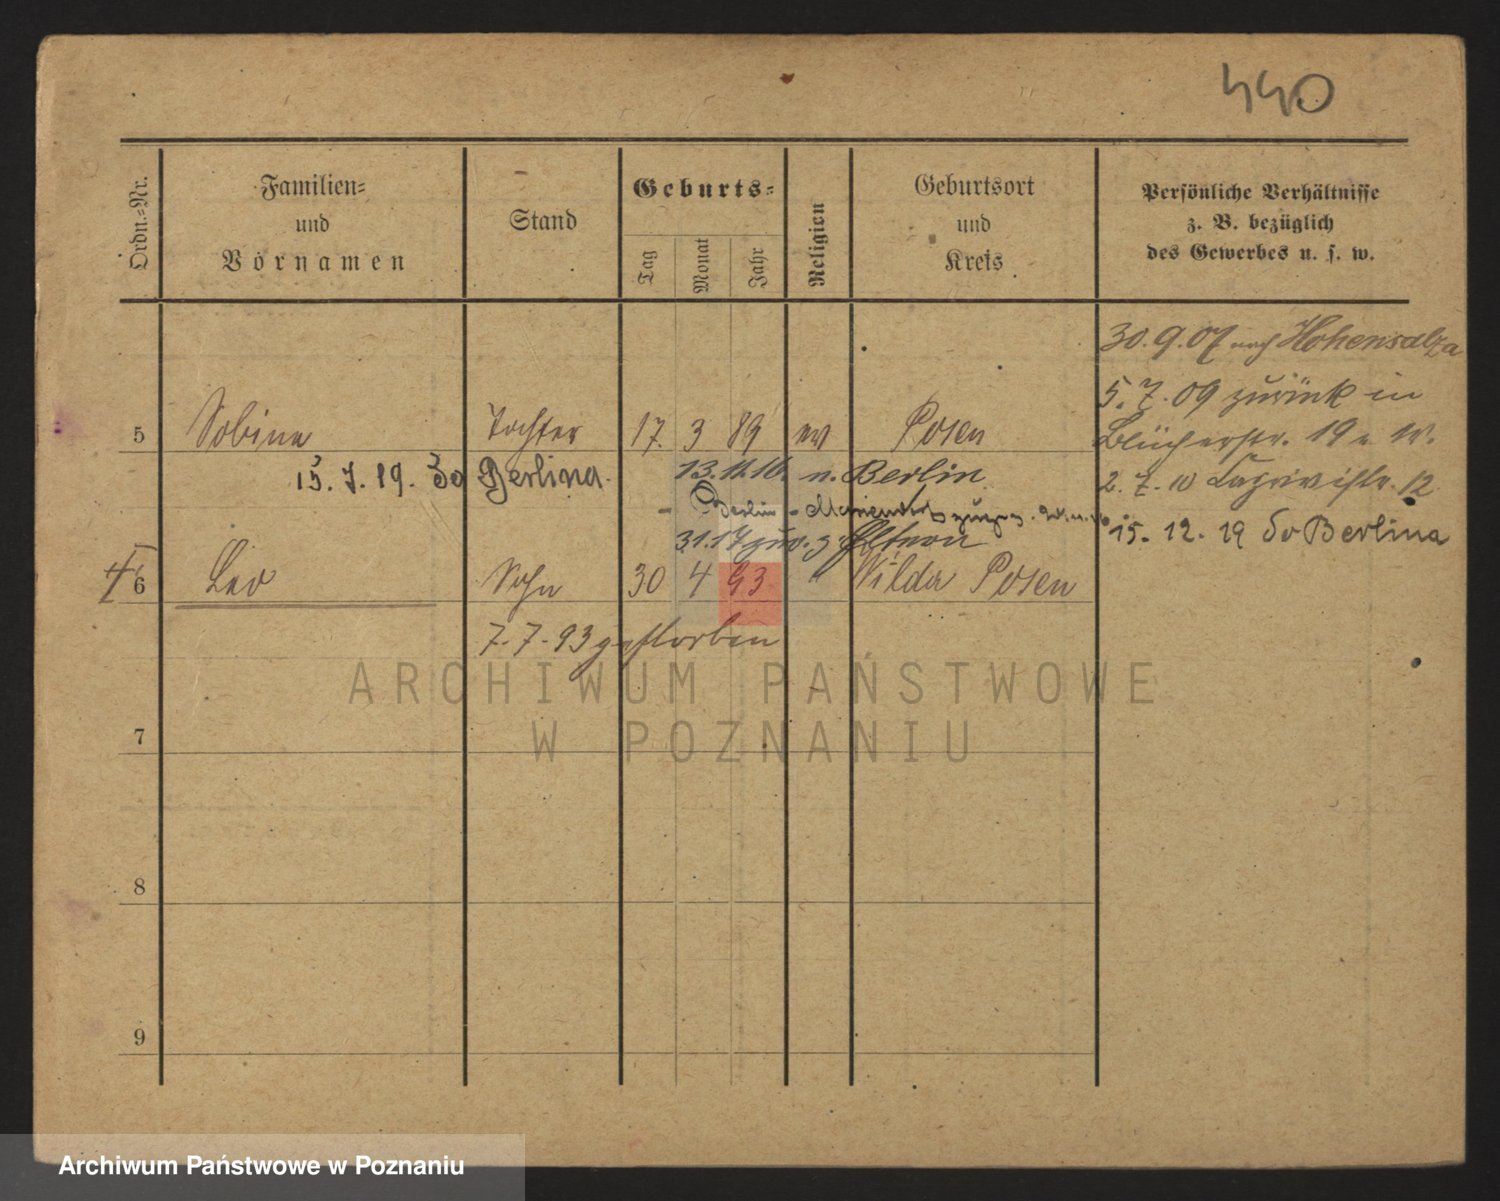 440
Ordn.=Nr.
Familien=
und
Vornamen
Stand
Geburts=
Tag
Monat
Jahr
Religion
Geburtsort
und
Kreis
Persönliche Verhältnisse
z. B. bezüglich
des Gewerbes u. s. w.
30.9.07 nach Hohensalza
5.7.09 zurück in
Blücherstr. 19
2.7.10 12
15. 12. 19 do Berlina
5 Sabina Tochter 17. 3 89 ev Posen
15. 7. 19. do Berlina
13.11.16. n. Berlin
Berlin - Mariendorf
31.1.17 zur. z. Eltern
6 Leo Sohn 30 4 93 " Wilda Posen
7. 7. 93 gestorben
ARCHIWUM PAŃSTWOWE
W POZNANIU
7
8
9
Archiwum Państwowe w Poznaniu